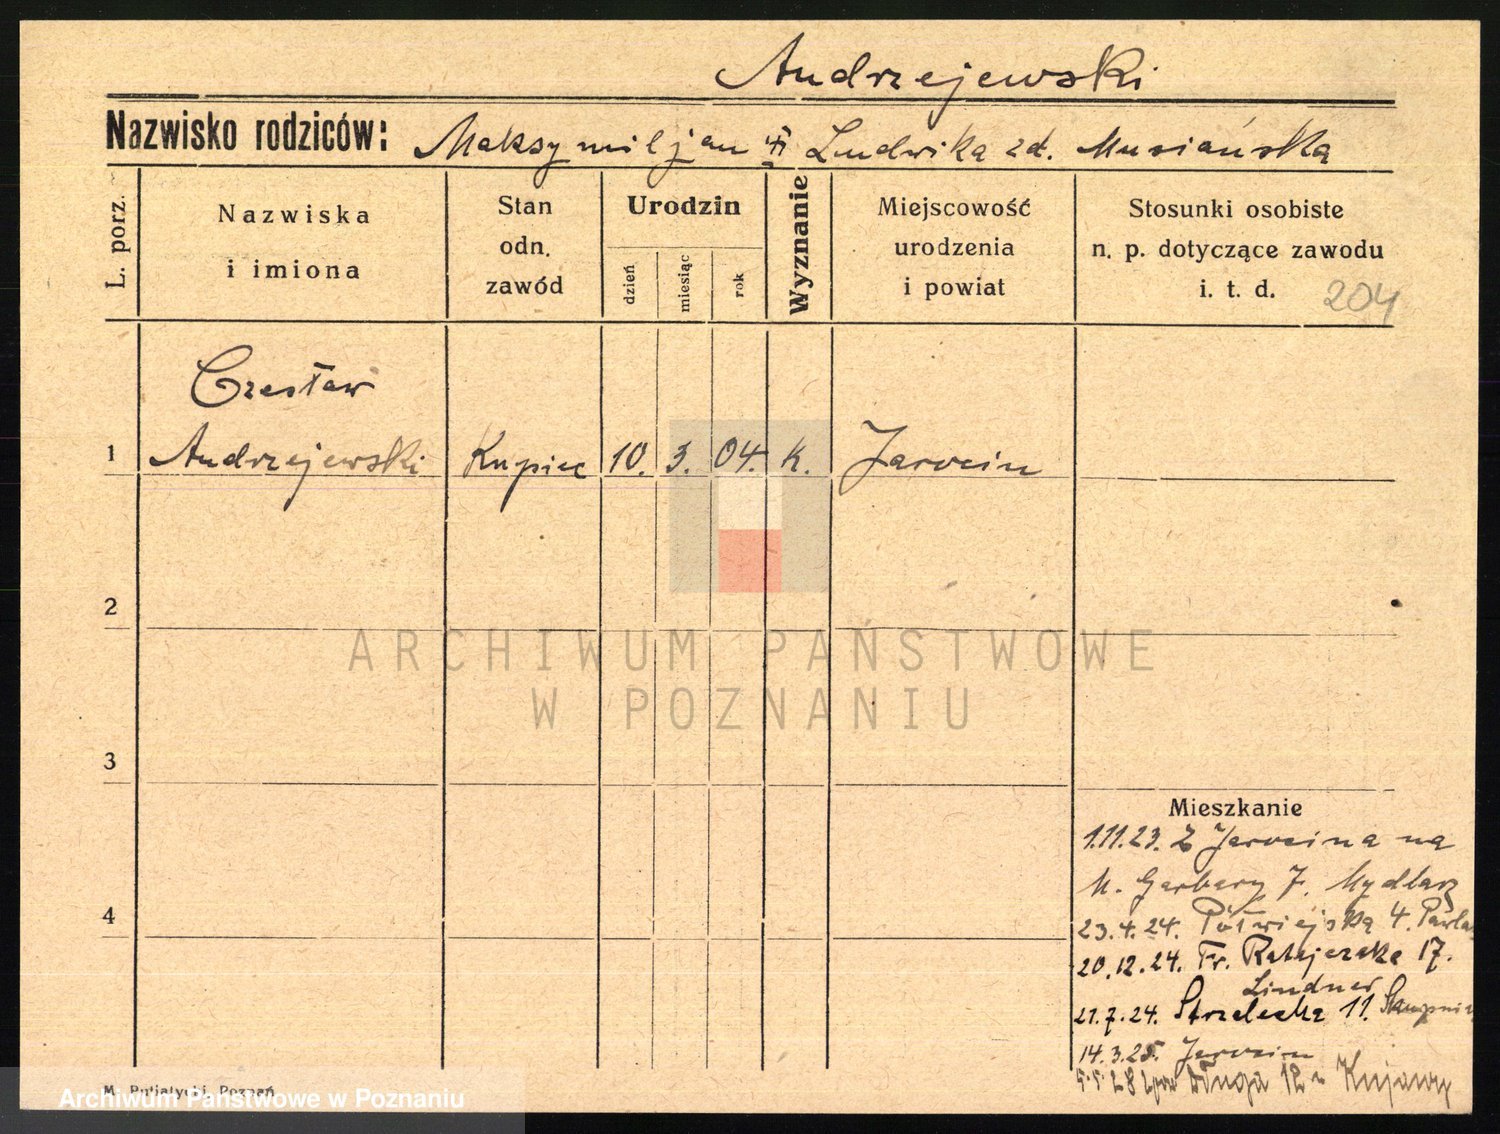 Andrzejewski
Nazwisko rodziców: Maksymiljan i Ludwika zd. Musiańska
L. porz.
Nazwiska
i imiona
Stan
odn.
zawód
Urodzin
dzień
miesiąc
rok
Wyznanie
Miejscowość
urodzenia
i powiat
Stosunki osobiste
n. p. dotyczące zawodu
i. t. d.
204
Czesław
1 Andrzejewski Kupiec 10. 3. 04. k. Jarocin
2
ARCHIWUM PAŃSTWOWE
W POZNANIU
3
Mieszkanie
1.11.23. Z Jarocina na
4 M. Garbary 7. Mydlarz
23.4.24. Półwiejska 4.
20.12.24. Fr. Ratajczaka 17.
Lindner
21.7.24. Strzelecka 11.
14.3.25. Jarocin
5.5.28 Długa 12
M. Putiatycki, Poznań
Archiwum Państwowe w Poznaniu